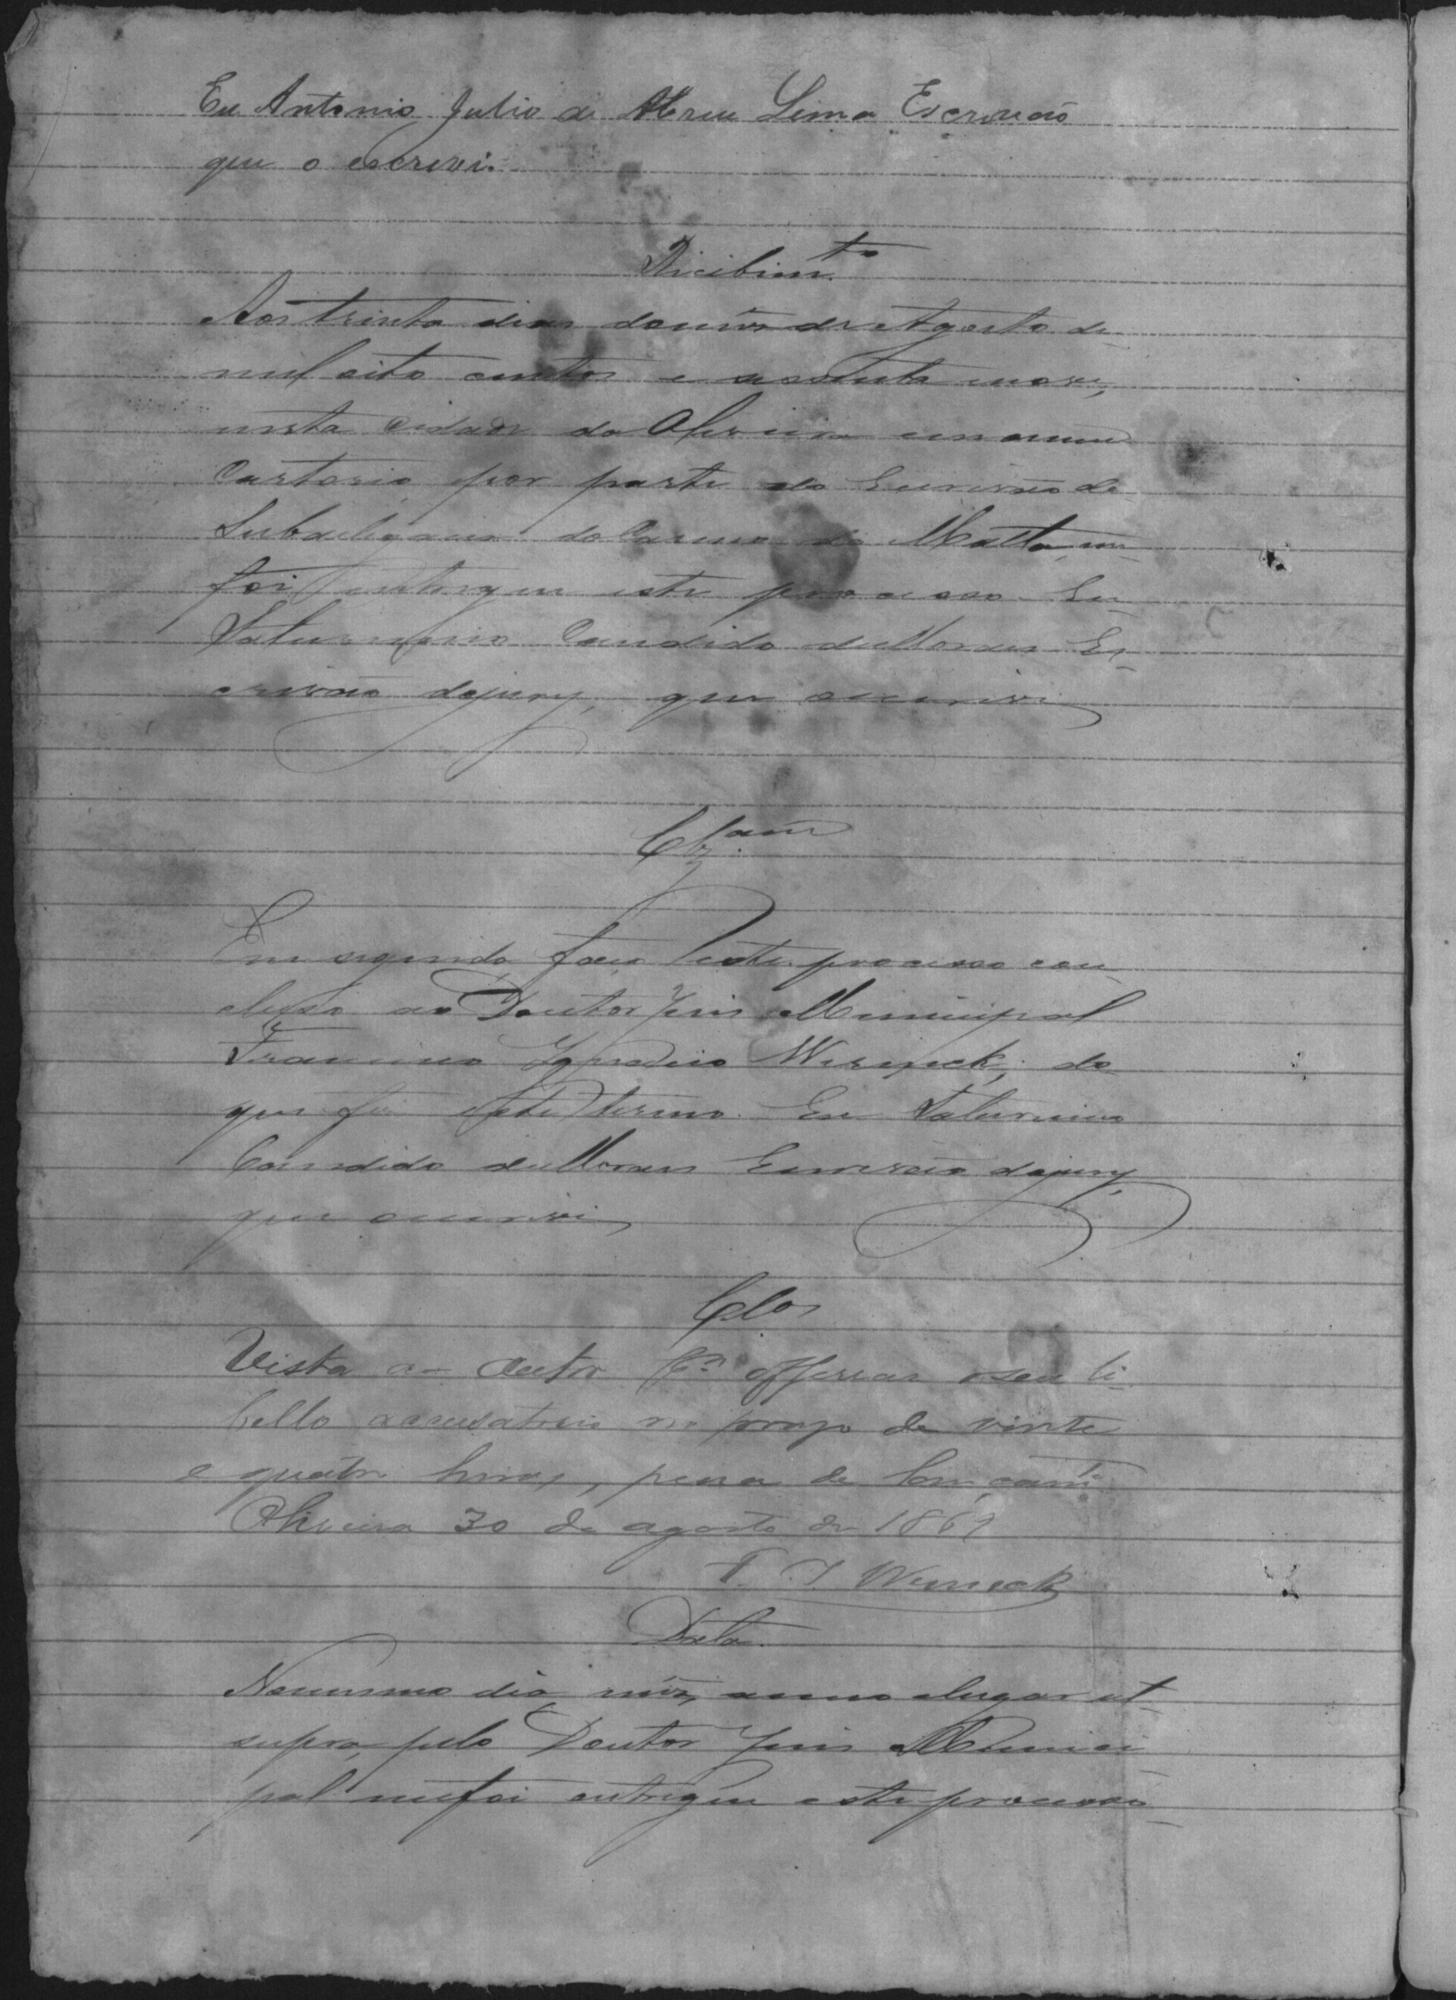 Eu Antonio Julio de Abreu Lima Escrivaõ
que o escrevi.
Ricibim.to
Aos trinta dias do mes de Agosto de
mil oito centos e sessenta nove,
nesta Cidade da Oliveira em meu
Cartorio por parte do Escrivão da
Subdelegacia do Carmo da Matta, me
foi entregue este processo Eu
Saturnino Candido de Moraes Es-
crivão do jury, que o escrevi
Clz.am
Em seguida faço este processo con-
cluso ao Doutor Juis Municipal
Francisco Ignacio Werneck, do
que fis este termo. Eu Saturnino
Candido de Moraes Escrivão do jury,
que o escrevi
Clos
Vista ao Autor p.a offerecer o seu li-
bello accusatorio no prazo de vinte
e quatro horas, pena de lançam.to
Oliveira 30 de agosto de 1869
F. I. Werneck
Data.
No mesmo dia, mes, anno e lugar ut
supra, pelo Doutor Juis Munici-
pal me foi entregue este processo